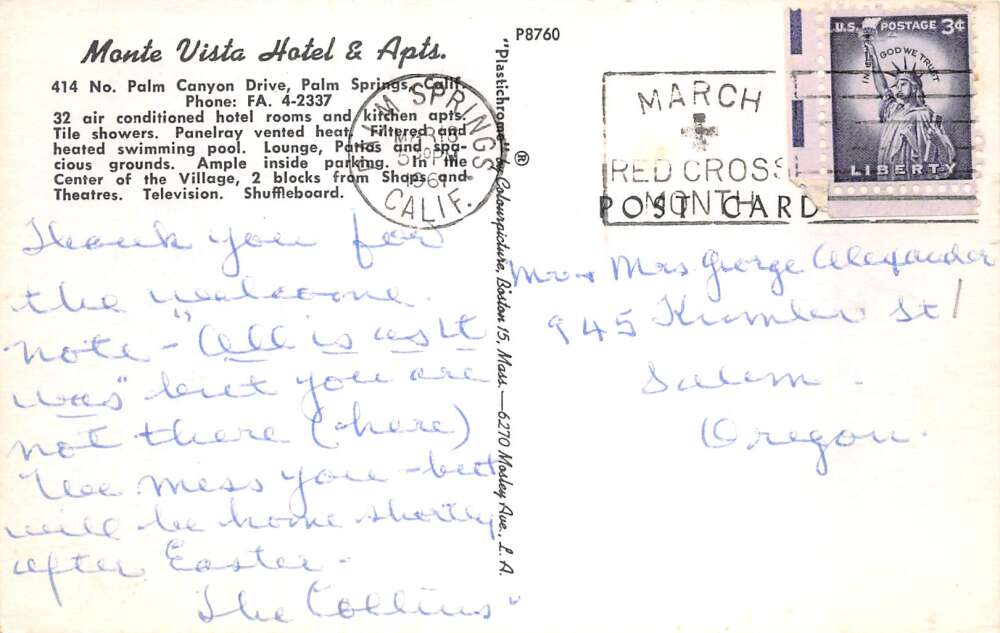 Monte Vista Hotel & Apts.
414 No. Palm Canyon Drive, Palm Springs, Calif.
Phone: FA. 4-2337
32 air conditioned hotel rooms and kitchen apts.
Tile showers. Panelray vented heat. Filtered and
heated swimming pool. Lounge, Patios and spa-
cious grounds. Ample inside parking. In the
Center of the Village, 2 blocks from Shops and
Theatres. Television. Shuffleboard.
Thank you for
the welcome
note - "All is as It
was" but you are
not there (here)
We miss you - but
will be home shortly
after Easter -
The Collins"
"Plastichrome" by Colourpicture, Boston 15, Mass. — 6270 Mosley Ave., L. A.
®
P8760
PALM SPRINGS
CALIF.
MAR 18
5 PM
1961
MARCH
RED CROSS
MONTH
U.S. POSTAGE 3¢
IN GOD WE TRUST
LIBERTY
POST CARD
Mr & Mrs George Alexander
945 Kumler St
Salem
Oregon.